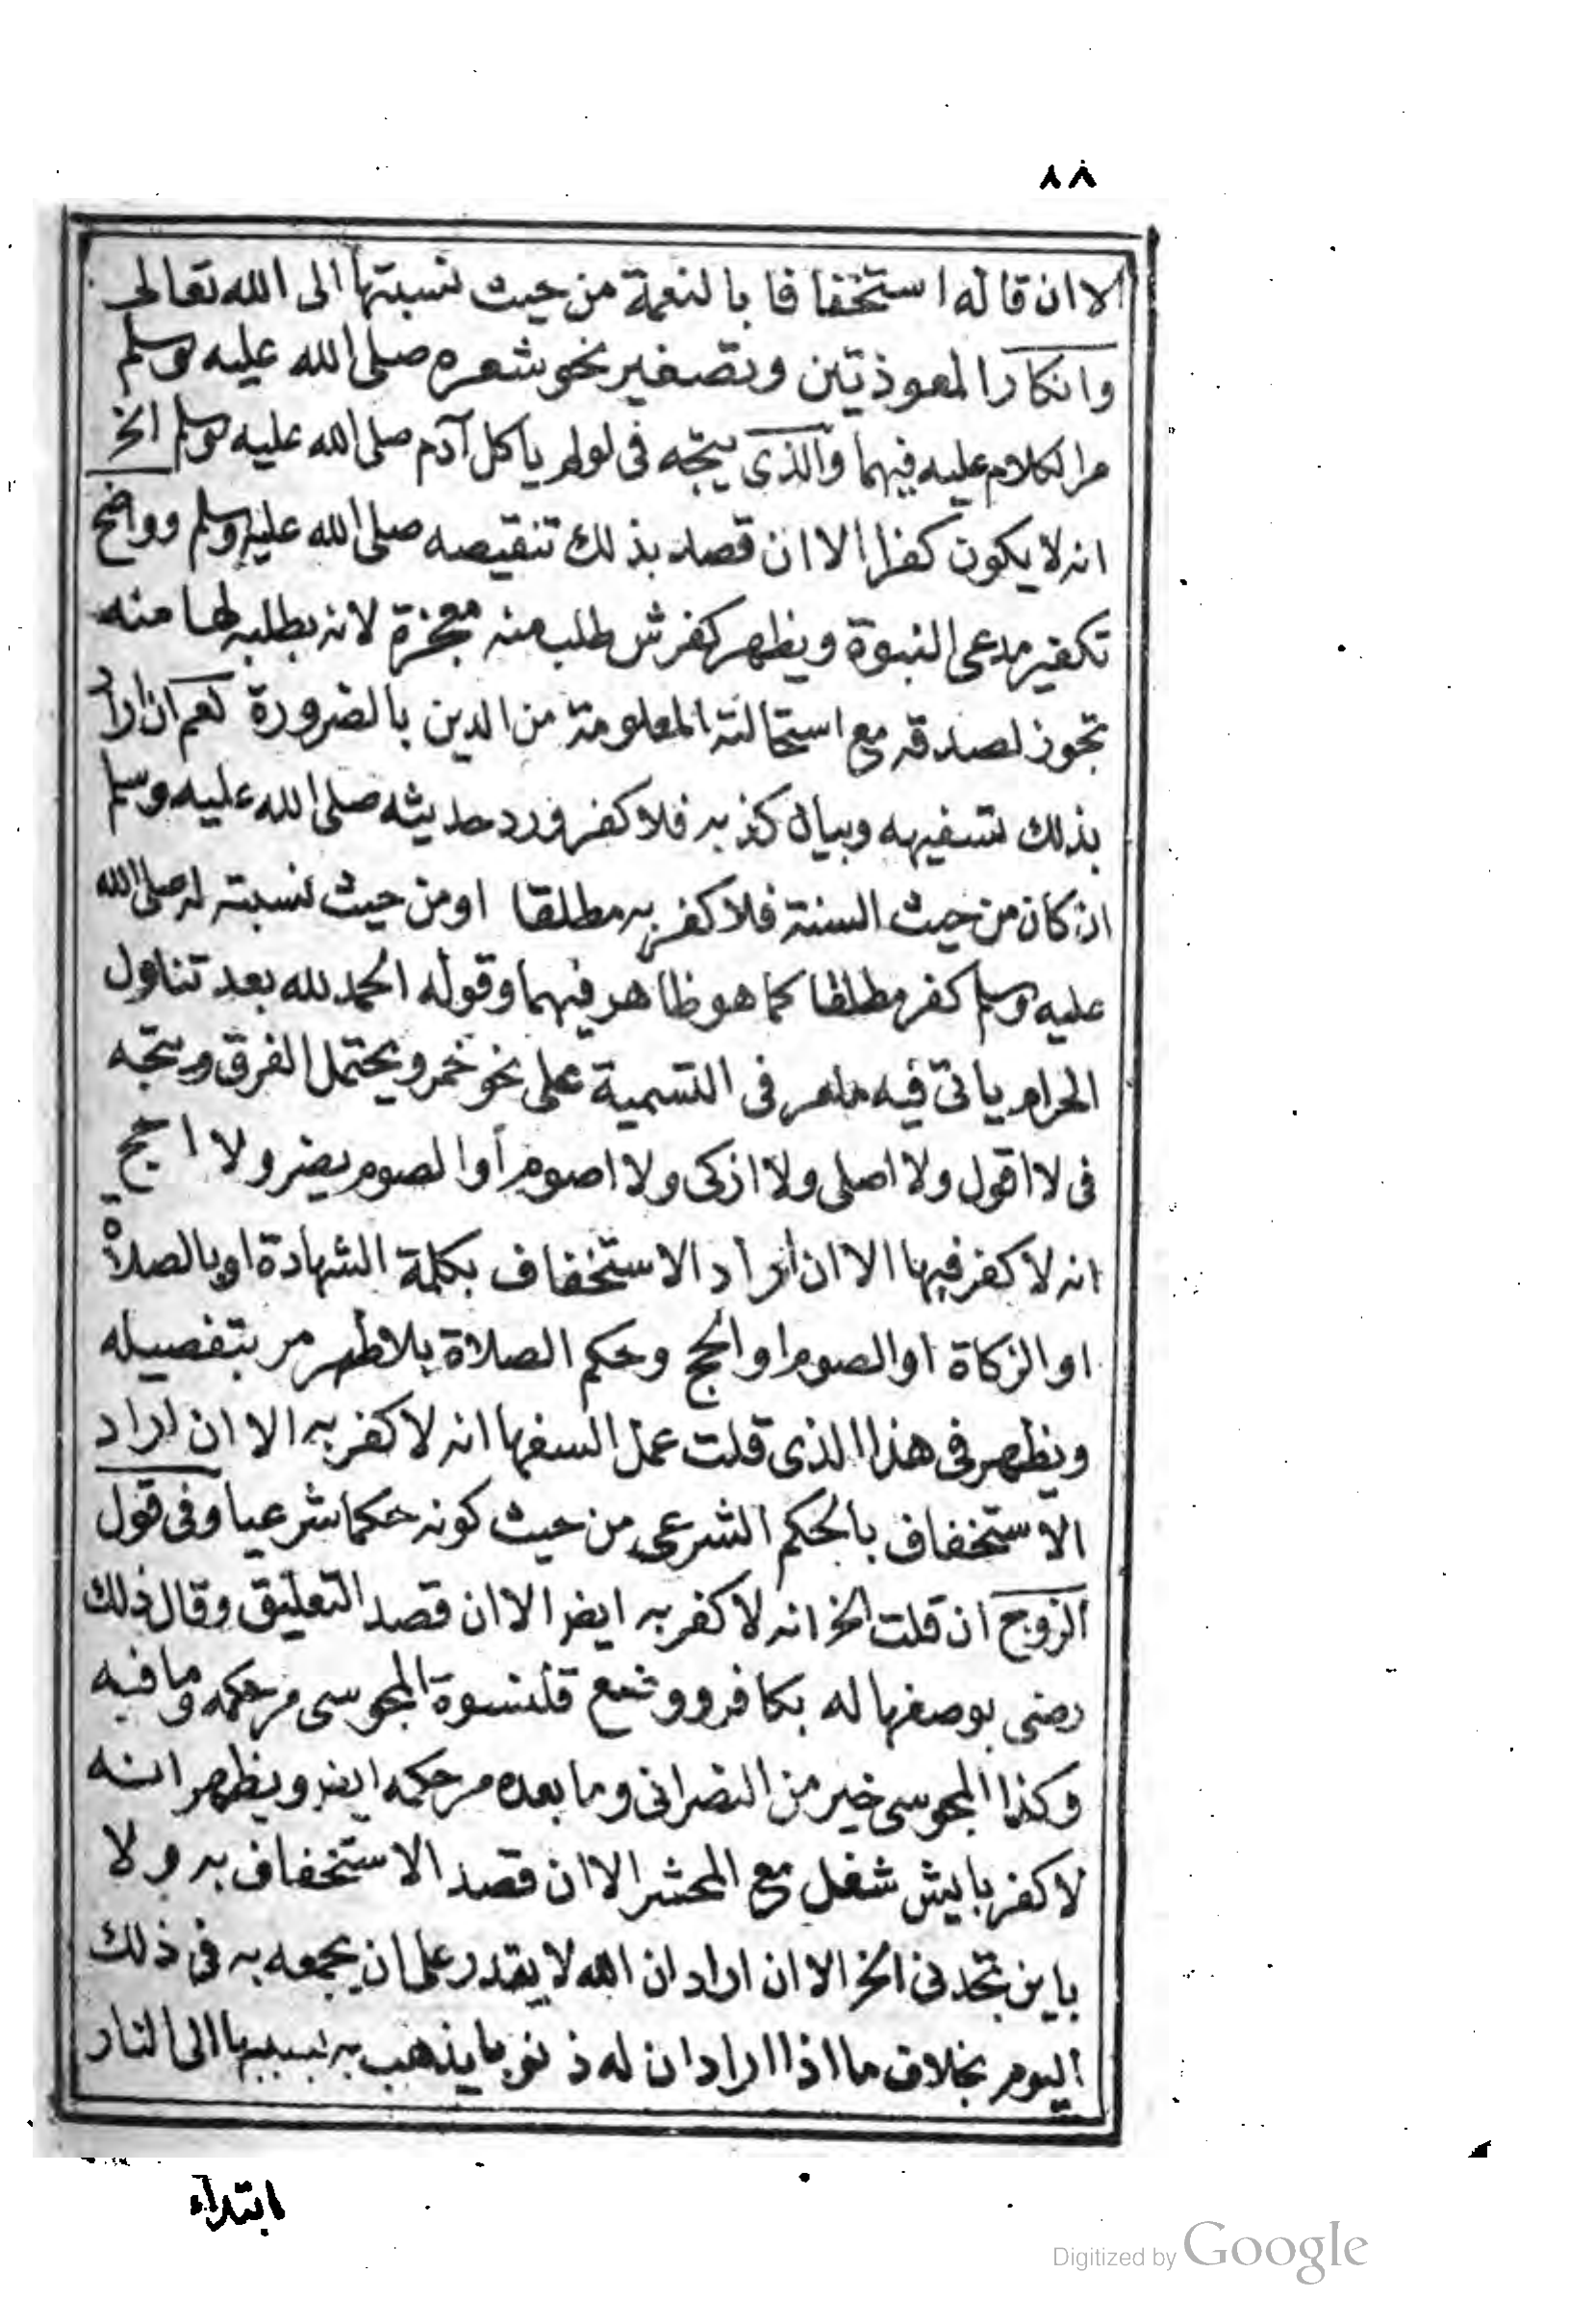 ٨٨
الا ان قاله استخفافا بالنعمة من حيث نسبتها الى الله تعالى
وانكار المعوذتين وتصغير نحو شعره صلى الله عليه وسلم
مر الكلام عليه فيهما والذى يتجه فى لو لم ياكل آدم صلى الله عليه وسلم الخ
انه لا يكون كفرا الا ان قصد بذلك تنقيصه صلى الله عليه وسلم وواضح
تكفير مدعى النبوة ويظهر كفر من طلب منه معجزة لانه بطلبه لها منه
تجوز لصدقه مع استحالته المعلومة من الدين بالضرورة نعم ان اراد
بذلك تسفيهه وبيان كذبه فلا كفر ورد حديثه صلى الله عليه وسلم
ان كان من حيث السنة فلا كفر به مطلقا او من حيث نسبته له صلى الله
عليه وسلم كفر مطلقا كما هو ظاهر فيهما وقوله الحمد لله بعد تناول
الحرام ياتى فيه ما مر فى التسمية على نحو خمر ويحتمل الفرق ويتجه
فى لا اقول ولا اصلى ولا ازكى ولا اصوم او الصوم يضر ولا احج
انه لا كفر فيها الا ان اراد الاستخفاف بكلمة الشهادة او بالصلاة
او الزكاة او الصوم او الحج وحكم الصلاة بلا طهر مر بتفصيله
ويظهر فى هذا الذى قلت عمل السفها انه لا كفر به الا ان اراد
الاستخفاف بالحكم الشرعى من حيث كونه حكما شرعيا وفى قول
الزوج ان قلت الخ انه لا كفر به ايضا الا ان قصد التعليق وقال ذلك
رضى بوصفها له بكافر ووضع قلنسوة المجوسى مر حكمه وما فيه
وكذا المجوسى خير من النصرانى وما بعده مر حكمه ايضا ويظهر انه
لا كفر بايش شغل مع المحشر الا ان قصد الاستخفاف به ولا
باين تجدنى الخ الا ان اراد ان الله لا يقدر على ان يجمعه به فى ذلك
اليوم بخلاف ما اذا اراد ان له ذنوبا يذهب به بسببها الى النار
ابتداء
Digitized by Google